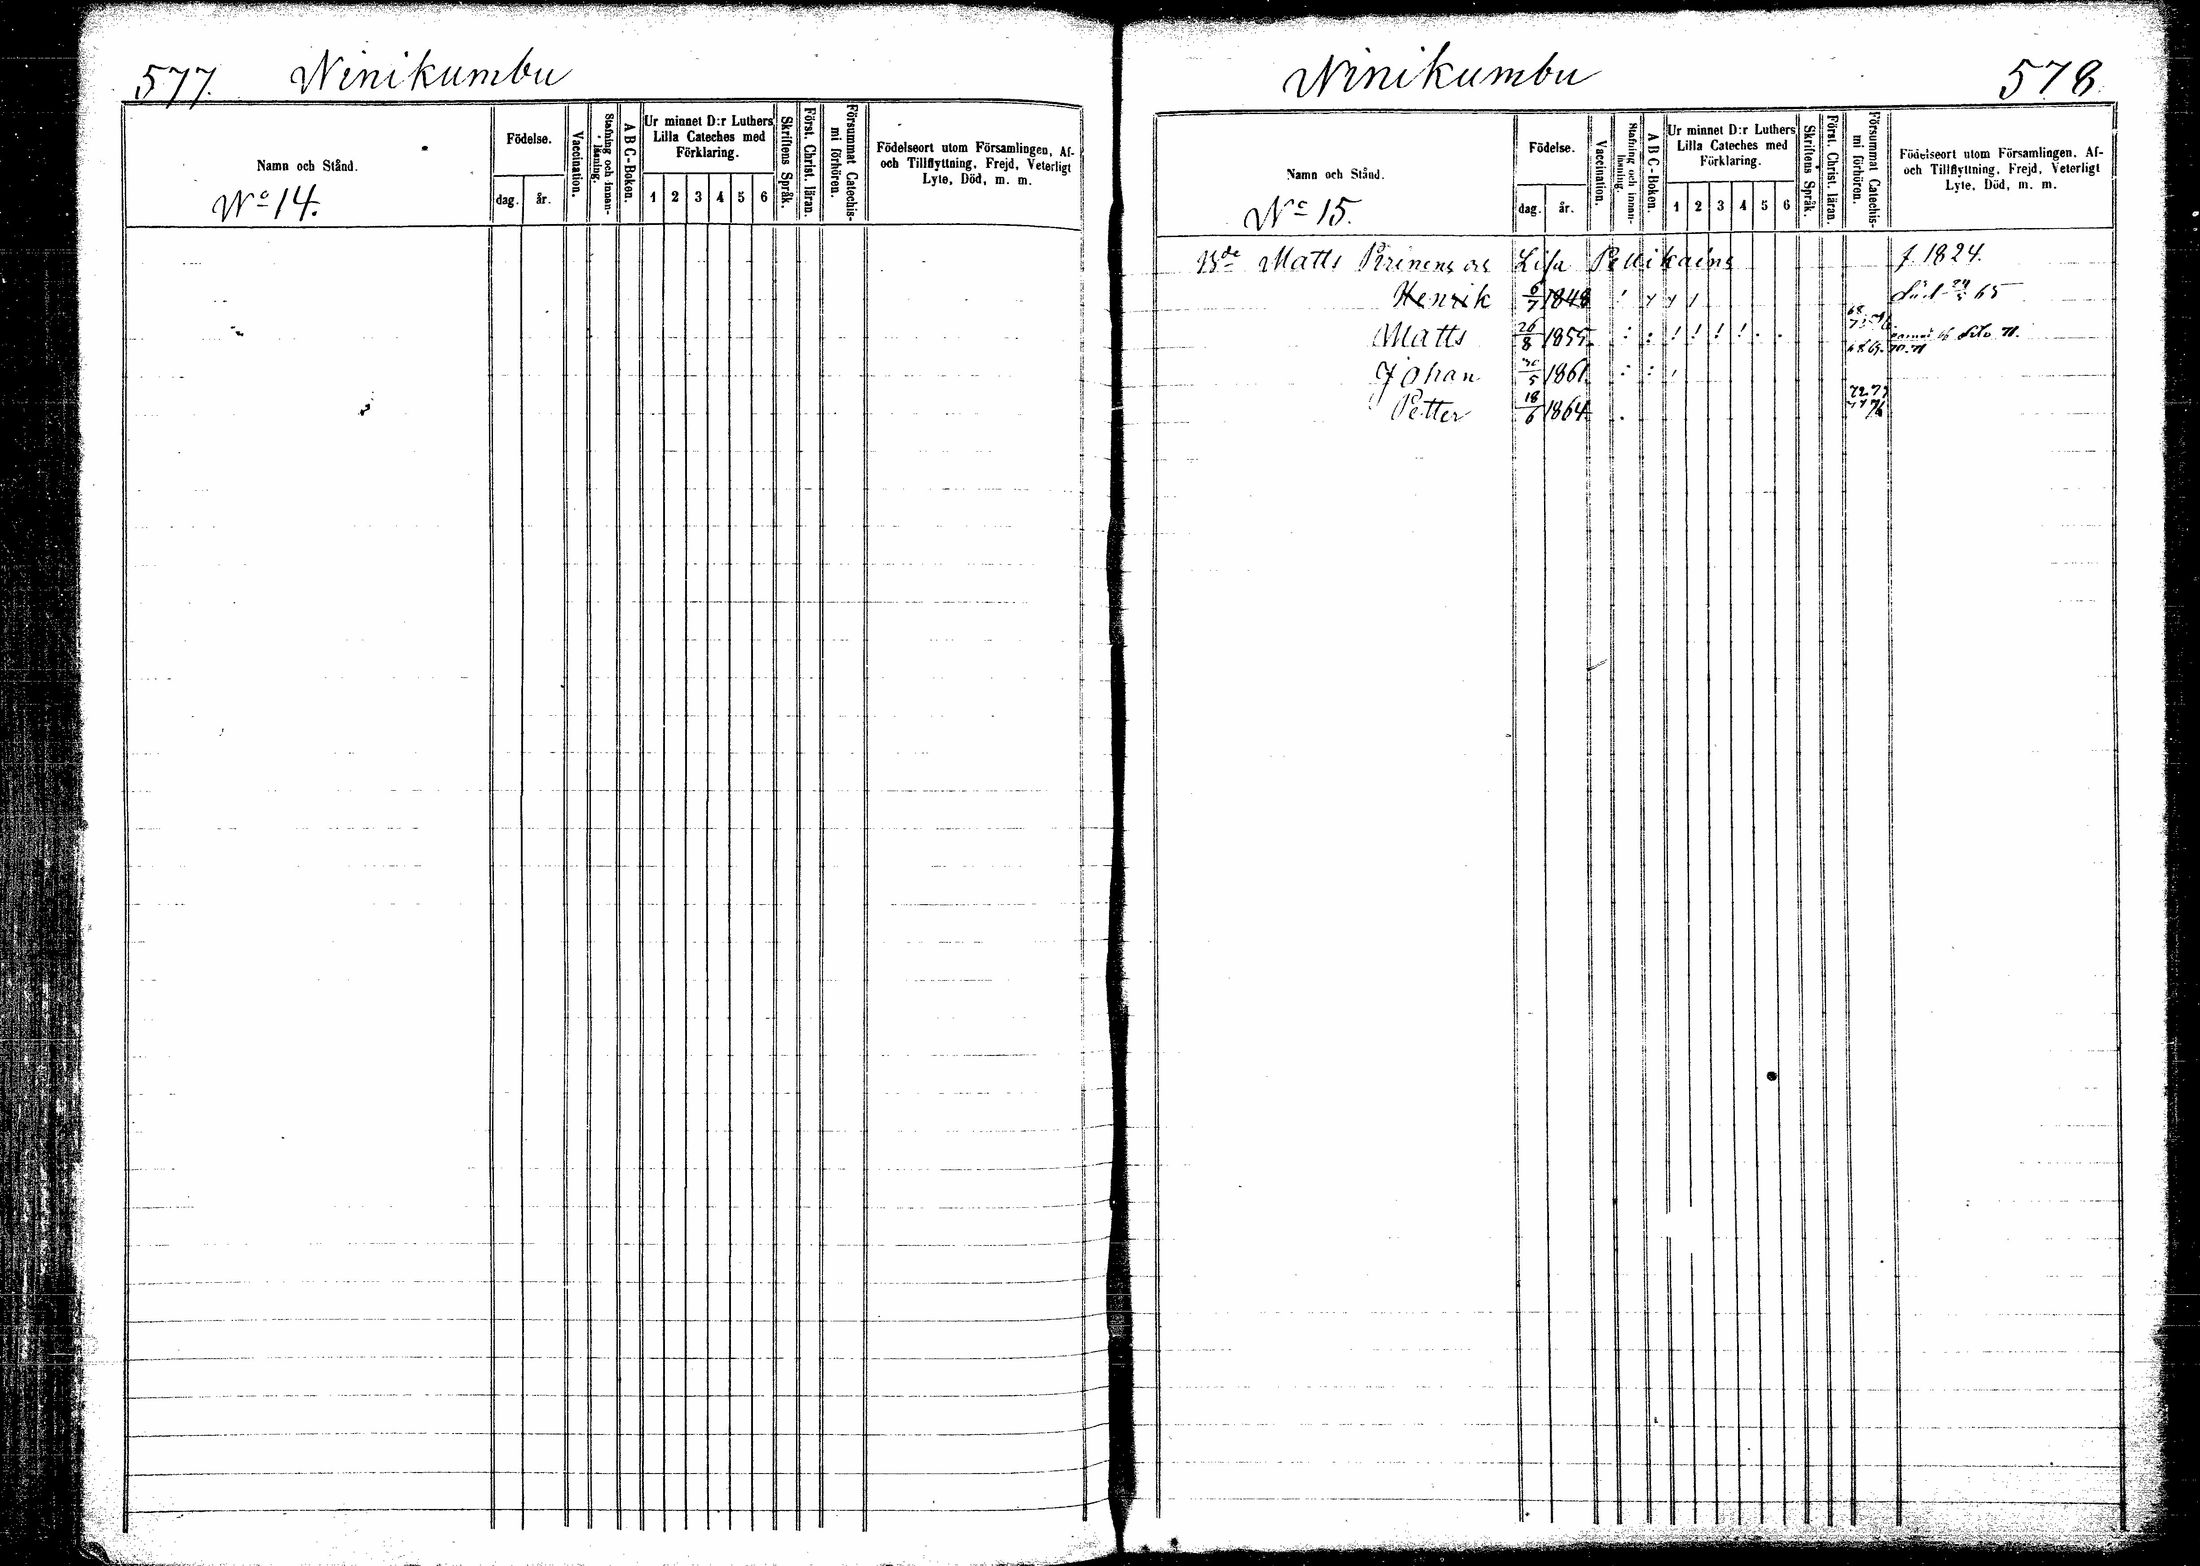 577. Ninikumbu
Namn och Stånd.
No 14.
Födelse.
dag. år.
Vaccination.
Stafning och innan-läsning.
A B C-Boken.
Ur minnet D:r Luthers
Lilla Cateches med
Förklaring.
1 2 3 4 5 6
Skriftens Språk.
Först. Christ. läran.
Försummat Catechis-
mi förhören.
Födelseort utom Församlingen, Af-
och Tillflyttning, Frejd, Veterligt
Lyte, Död, m. m.
Ninikumbu 578
Namn och Stånd.
No 15.
Födelse.
dag. år.
Vaccination.
Stafning och innan-läsning.
A B C-Boken.
Ur minnet D:r Luthers
Lilla Cateches med
Förklaring.
1 2 3 4 5 6
Skriftens Språk.
Först. Christ. läran.
Försummat Catechis-
mi förhören.
Födelseort utom Församlingen, Af-
och Tillflyttning, Frejd, Veterligt
Lyte, Död, m. m.
Matts Pirinens Lisa f 1824.
Henrik 6/7 1848 65
Matts 26/8 1855.
Johan 1861.
Petter 18/6 1864.